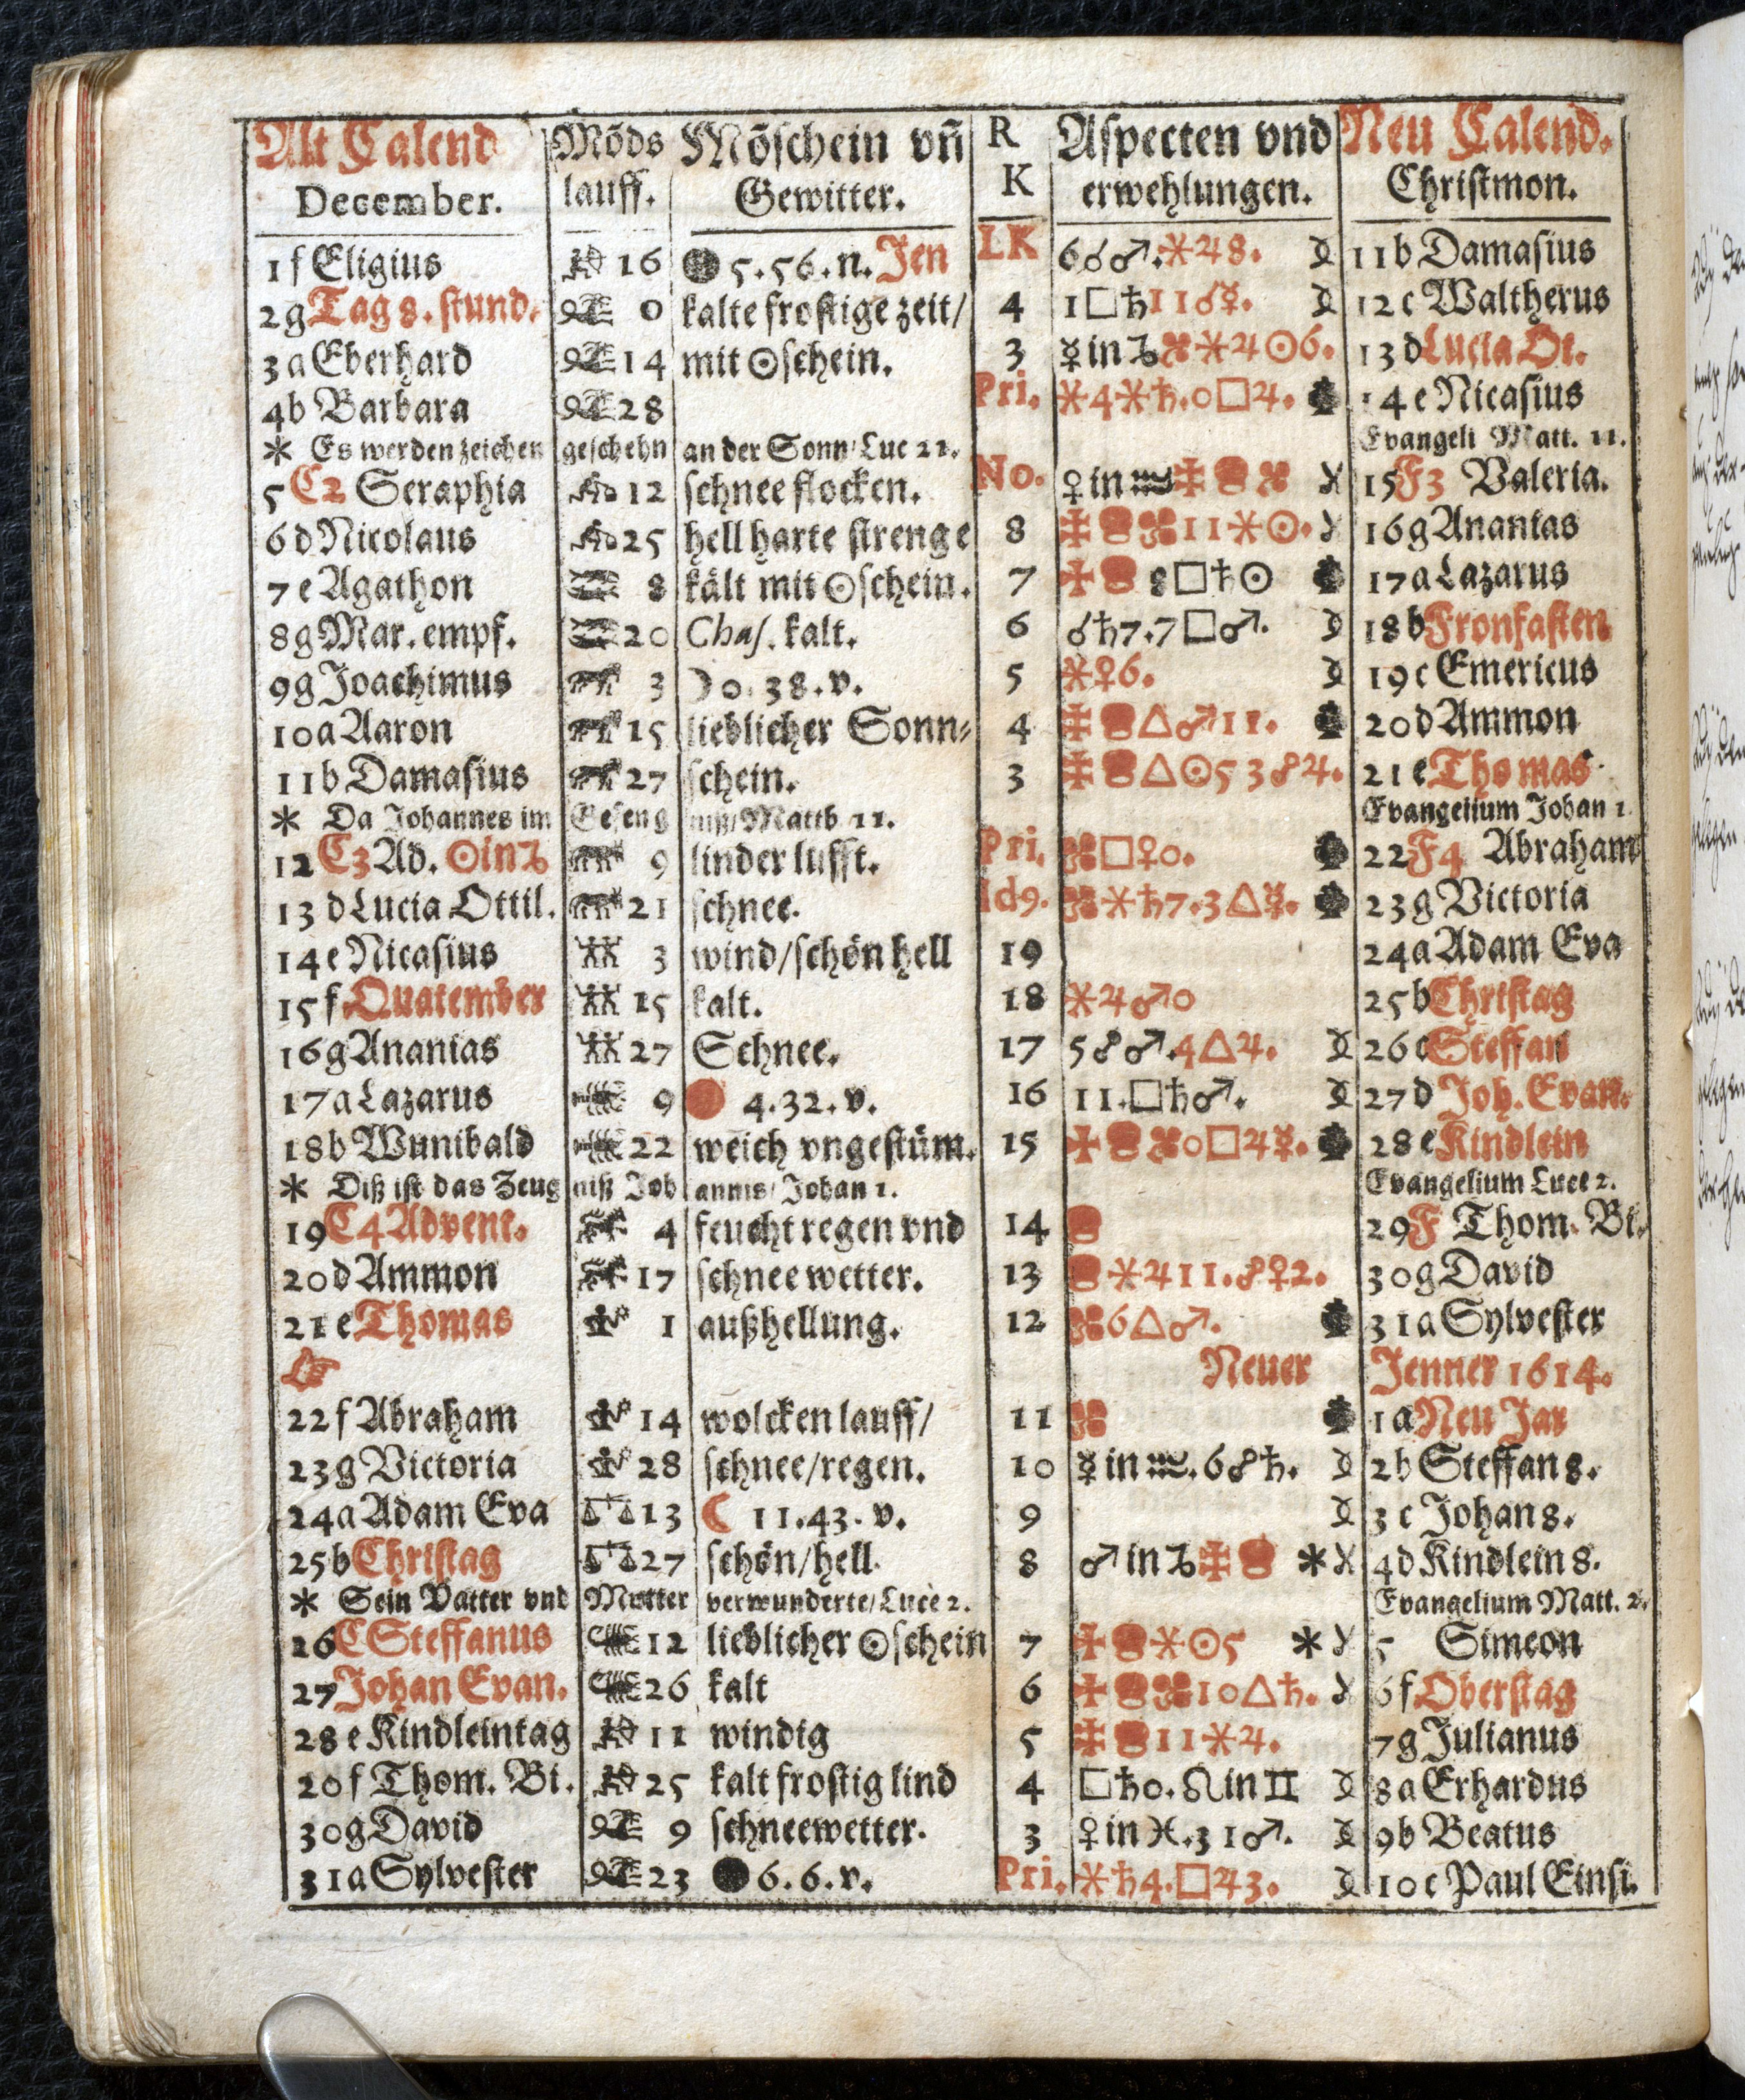 Alt Calend Mõds Mõschein vñ R Aspecten vnd Neu Calend.
December. lauff. Gewitter. K erwehlungen. Christmon.
1 f Eligius 16 5.56.n. Jen LK 6☌♂.✶♃8. 11 b Damasius
2 g Tag 8. stund. 0 kalte frostige zeit/ 4 1□♄11☌☿. 12 c Waltherus
3 a Eberhard 14 mit ☉schein. 3 ☿in♑ ✶♃☉6. 13 d Lucia Ot.
4 b Barbara 28 Pri. ✶4✶♄.0□♃. 14 e Nicasius
* Es werden zeichen geschehn an der Sonn/Luc 21. Evangeli Matt. 11.
5 C2 Seraphia 12 schnee flocken. No. ♀in♒ 15 F3 Valeria.
6 d Nicolaus 25 hell harte strenge 8 11✶☉. 16 g Ananias
7 e Agathon 8 kält mit ☉schein. 7 8□♄☉ 17 a Lazarus
8 g Mar. empf. 20 Chas. kalt. 6 ☌♄7.7□♂. 18 b Fronfasten
9 g Joachimus 3 ☽0.38.v. 5 ✶♀6. 19 c Emericus
10 a Aaron 15 lieblicher Sonn- 4 △♂11. 20 d Ammon
11 b Damasius 27 schein. 3 △☉5 3☍♃. 21 e Thomas
* Da Johannes im Gefeng niß/Matth 11. Evangelium Johan 1
12 C3 Ad. ☉in♑ 9 linder lufft. Pri. □♀0. 22 F4 Abraham
13 d Lucia Ottil. 21 schnee. Id9. ✶♄7.3△☿. 23 g Victoria
14 e Nicasius 3 wind/schön hell 19 24 a Adam Eva
15 f Quatember 15 kalt. 18 ✶♃♂0 25 b Christag
16 g Ananias 27 Schnee. 17 5☍♂.4△♃. 26 c Steffan
17 a Lazarus 9 4.32.v. 16 11.□♄♂. 27 d Joh. Evan.
18 b Wunibald 22 weich vngestüm. 15 0□♃☿. 28 e Kindlein
* Diß ist das Zeug niß Joh annis/Johan 1. Evangelium Luce 2.
19 C4 Advent. 4 feucht regen vnd 14 29 F Thom. Bi.
20 d Ammon 17 schnee wetter. 13 ✶♃11.☍♀2. 30 g David
21 e Thomas 1 außhellung. 12 6△♂. 31 a Sylvester
Neuer Jenner 1614.
22 f Abraham 14 wolcken lauff/ 11 1 a Neu Jar
23 g Victoria 28 schnee/regen. 10 ☿in♒.6☍♄. 2 b Steffan 8.
24 a Adam Eva 13 ☾ 11.43.v. 9 3 c Johan 8.
25 b Christag 27 schön/hell. 8 ♂in♑ * 4 d Kindlein 8.
* Sein Vatter vnd Mutter verwunderte/Luce 2. Evangelium Matt. 2.
26 C Steffanus 12 lieblicher ☉schein 7 ✶☉5 * 5 Simeon
27 Johan Evan. 26 kalt 6 10△♄. 6 f Oberstag
28 e Kindleintag 11 windig 5 11✶♃. 7 g Julianus
20 f Thom. Bi. 25 kalt frostig lind 4 □♄0.☊in♊ 8 a Erhardus
30 g David 9 schneewetter. 3 ♀in♓.3 1♂. 9 b Beatus
31 a Sylvester 23 6.6.v. Pri. ✶♄4.□♃3. 10 c Paul Einsi.